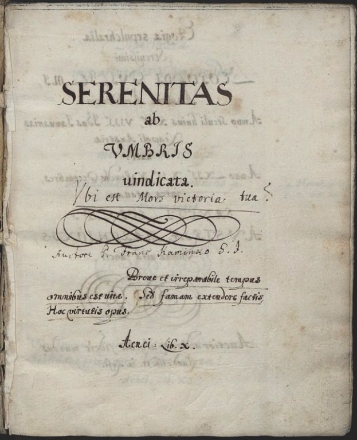 SERENITAS
ab
VMBRIS
uindicata.
Vbi est Mors victoria tua?
Auctore P. Franc S. I.
Breue et irreparabile tempus
omnibus est uitæ. Sed famam extendere factis
Hoc virtutis opus.
Æneid. Lib. X.